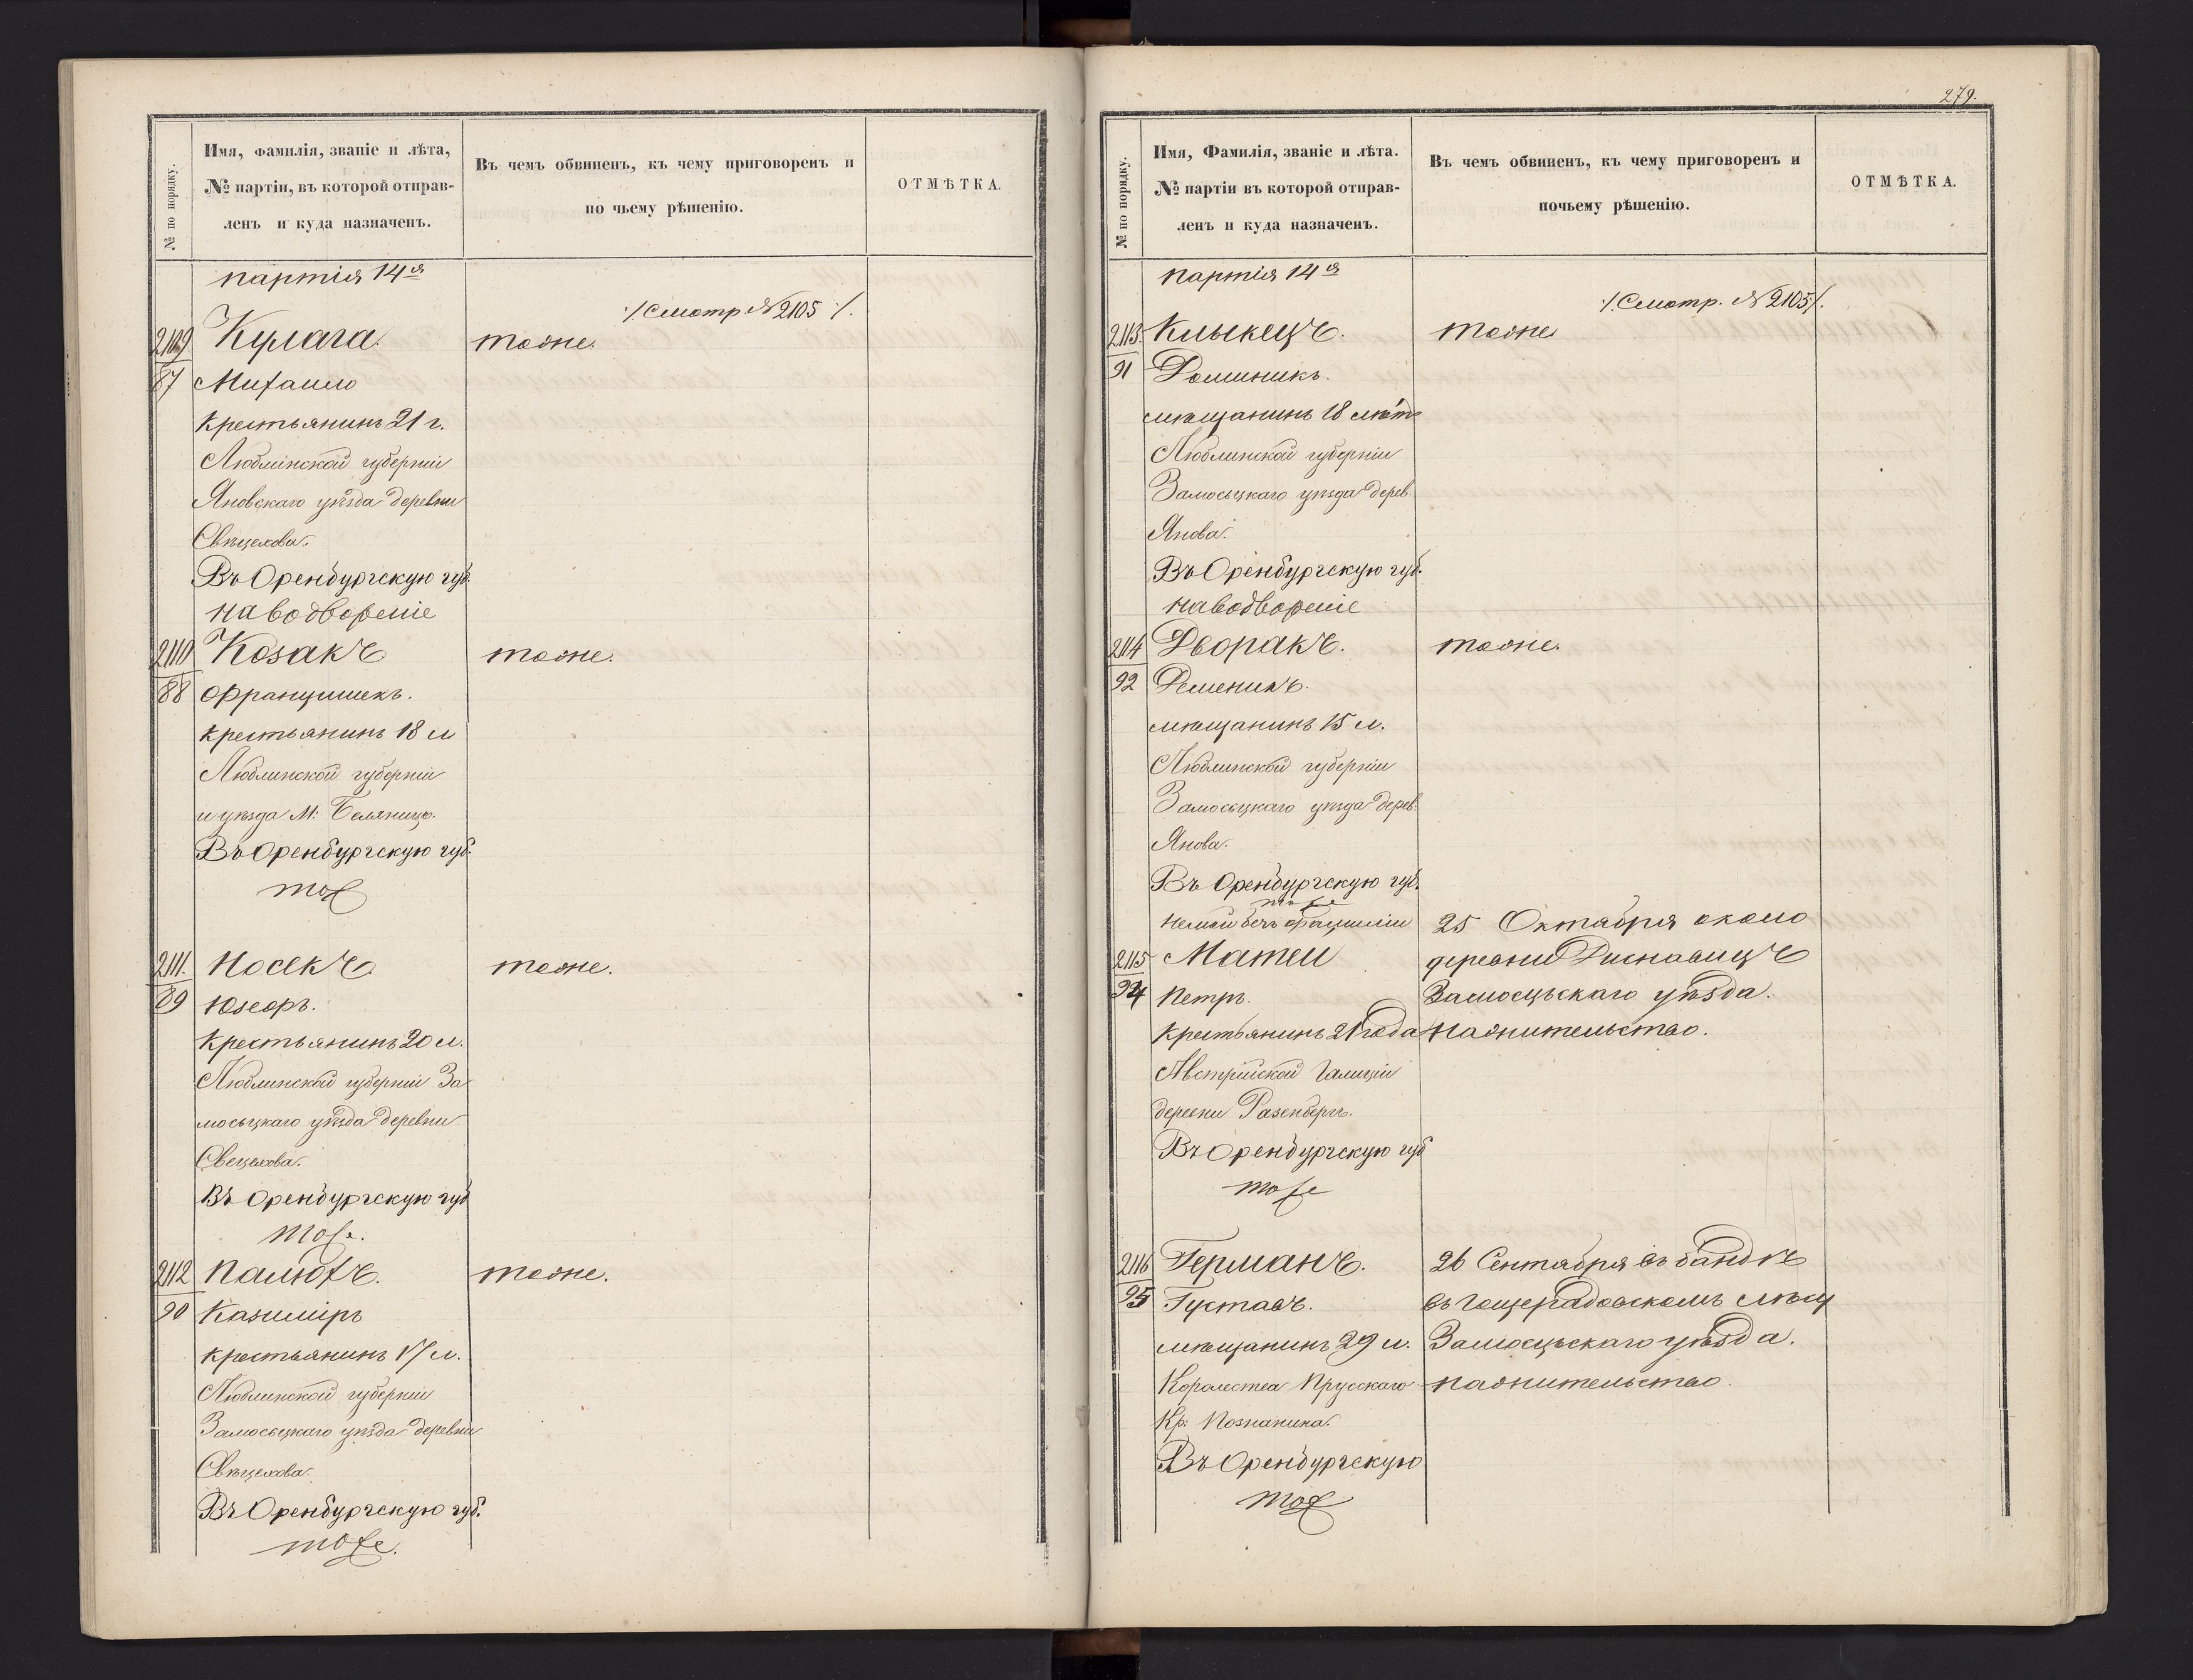 № по порядку.
Имя, фамилія, званіе и лѣта,
№ партіи, въ которой отправ-
ленъ и куда назначенъ.
Въ чемъ обвиненъ, къ чему приговоренъ и
по чьему рѣшенію.
ОТМѢТКА.
партія 14я
:/Смотр. № 2105:/.
2109 Кулага. тоже.
87 Михаило
крестьянинъ 21 г.
Люблинской губерніи
Яновскаго уѣзда деревни
Свѣцехова.
Въ Оренбургскую губ.
на водвореніе
2110 Козакъ тоже.
88 Францишекъ.
крестьянинъ 18 л
Люблинской губерніи
и уѣзда М:
Въ Оренбургскую губ.
тоже
2111. Носекъ тоже.
89 Юзефъ.
крестьянинъ 20 л.
Люблинской губерніи За
мосьцкаго уѣзда деревни
Свецехова.
Въ Оренбургскую губ
тоже.
2112 Палюхъ. тоже.
90 Казиміръ
крестьянинъ 17 л.
Люблинской губерніи
Замосьцкаго уѣзда деревни
Свѣцехова.
Въ Оренбургскую губ.
тоже.
279.
№ по порядку.
Имя, Фамилія, званіе и лѣта.
№ партіи въ которой отправ-
ленъ и куда назначенъ.
Въ чемъ обвиненъ, къ чему приговоренъ и
почьему рѣшенію.
ОТМѢТКА.
партія 14я
:/.Смотр. № 2105/.
2113. Клыкецъ. тоже
91 Доминикъ.
мѣщанинъ 18 лѣтъ
Люблинской губерніи
Замосьцкаго уѣзда дерев.
Янова.
Въ Оренбургскую губ.
на водвореніе
2114 Дворакъ. тоже.
92
мѣщанинъ 15 л.
Люблинской губерніи
Замосьцкаго уѣзда дерев.
Янова.
Въ Оренбургскую губ.
тоже
немой безъ фамиліи 25 Октября около
2115 Матеи деревни
94 Петръ. Замосцьскаго уѣзда.
крестьянинъ 21 года
Австрійской Галиціи
деревни Разенбергъ.
Въ Оренбургскую губ
тоже
2116 Германъ. 26 Сентября въ бандѣ
95 Густавъ. въ Гощерадовскомъ лѣсу
мѣщанинъ 29 л. Замосцьскаго уѣзда.
Королества Прусскаго
Кр: Познанина.
Въ Оренбургскую
тоже